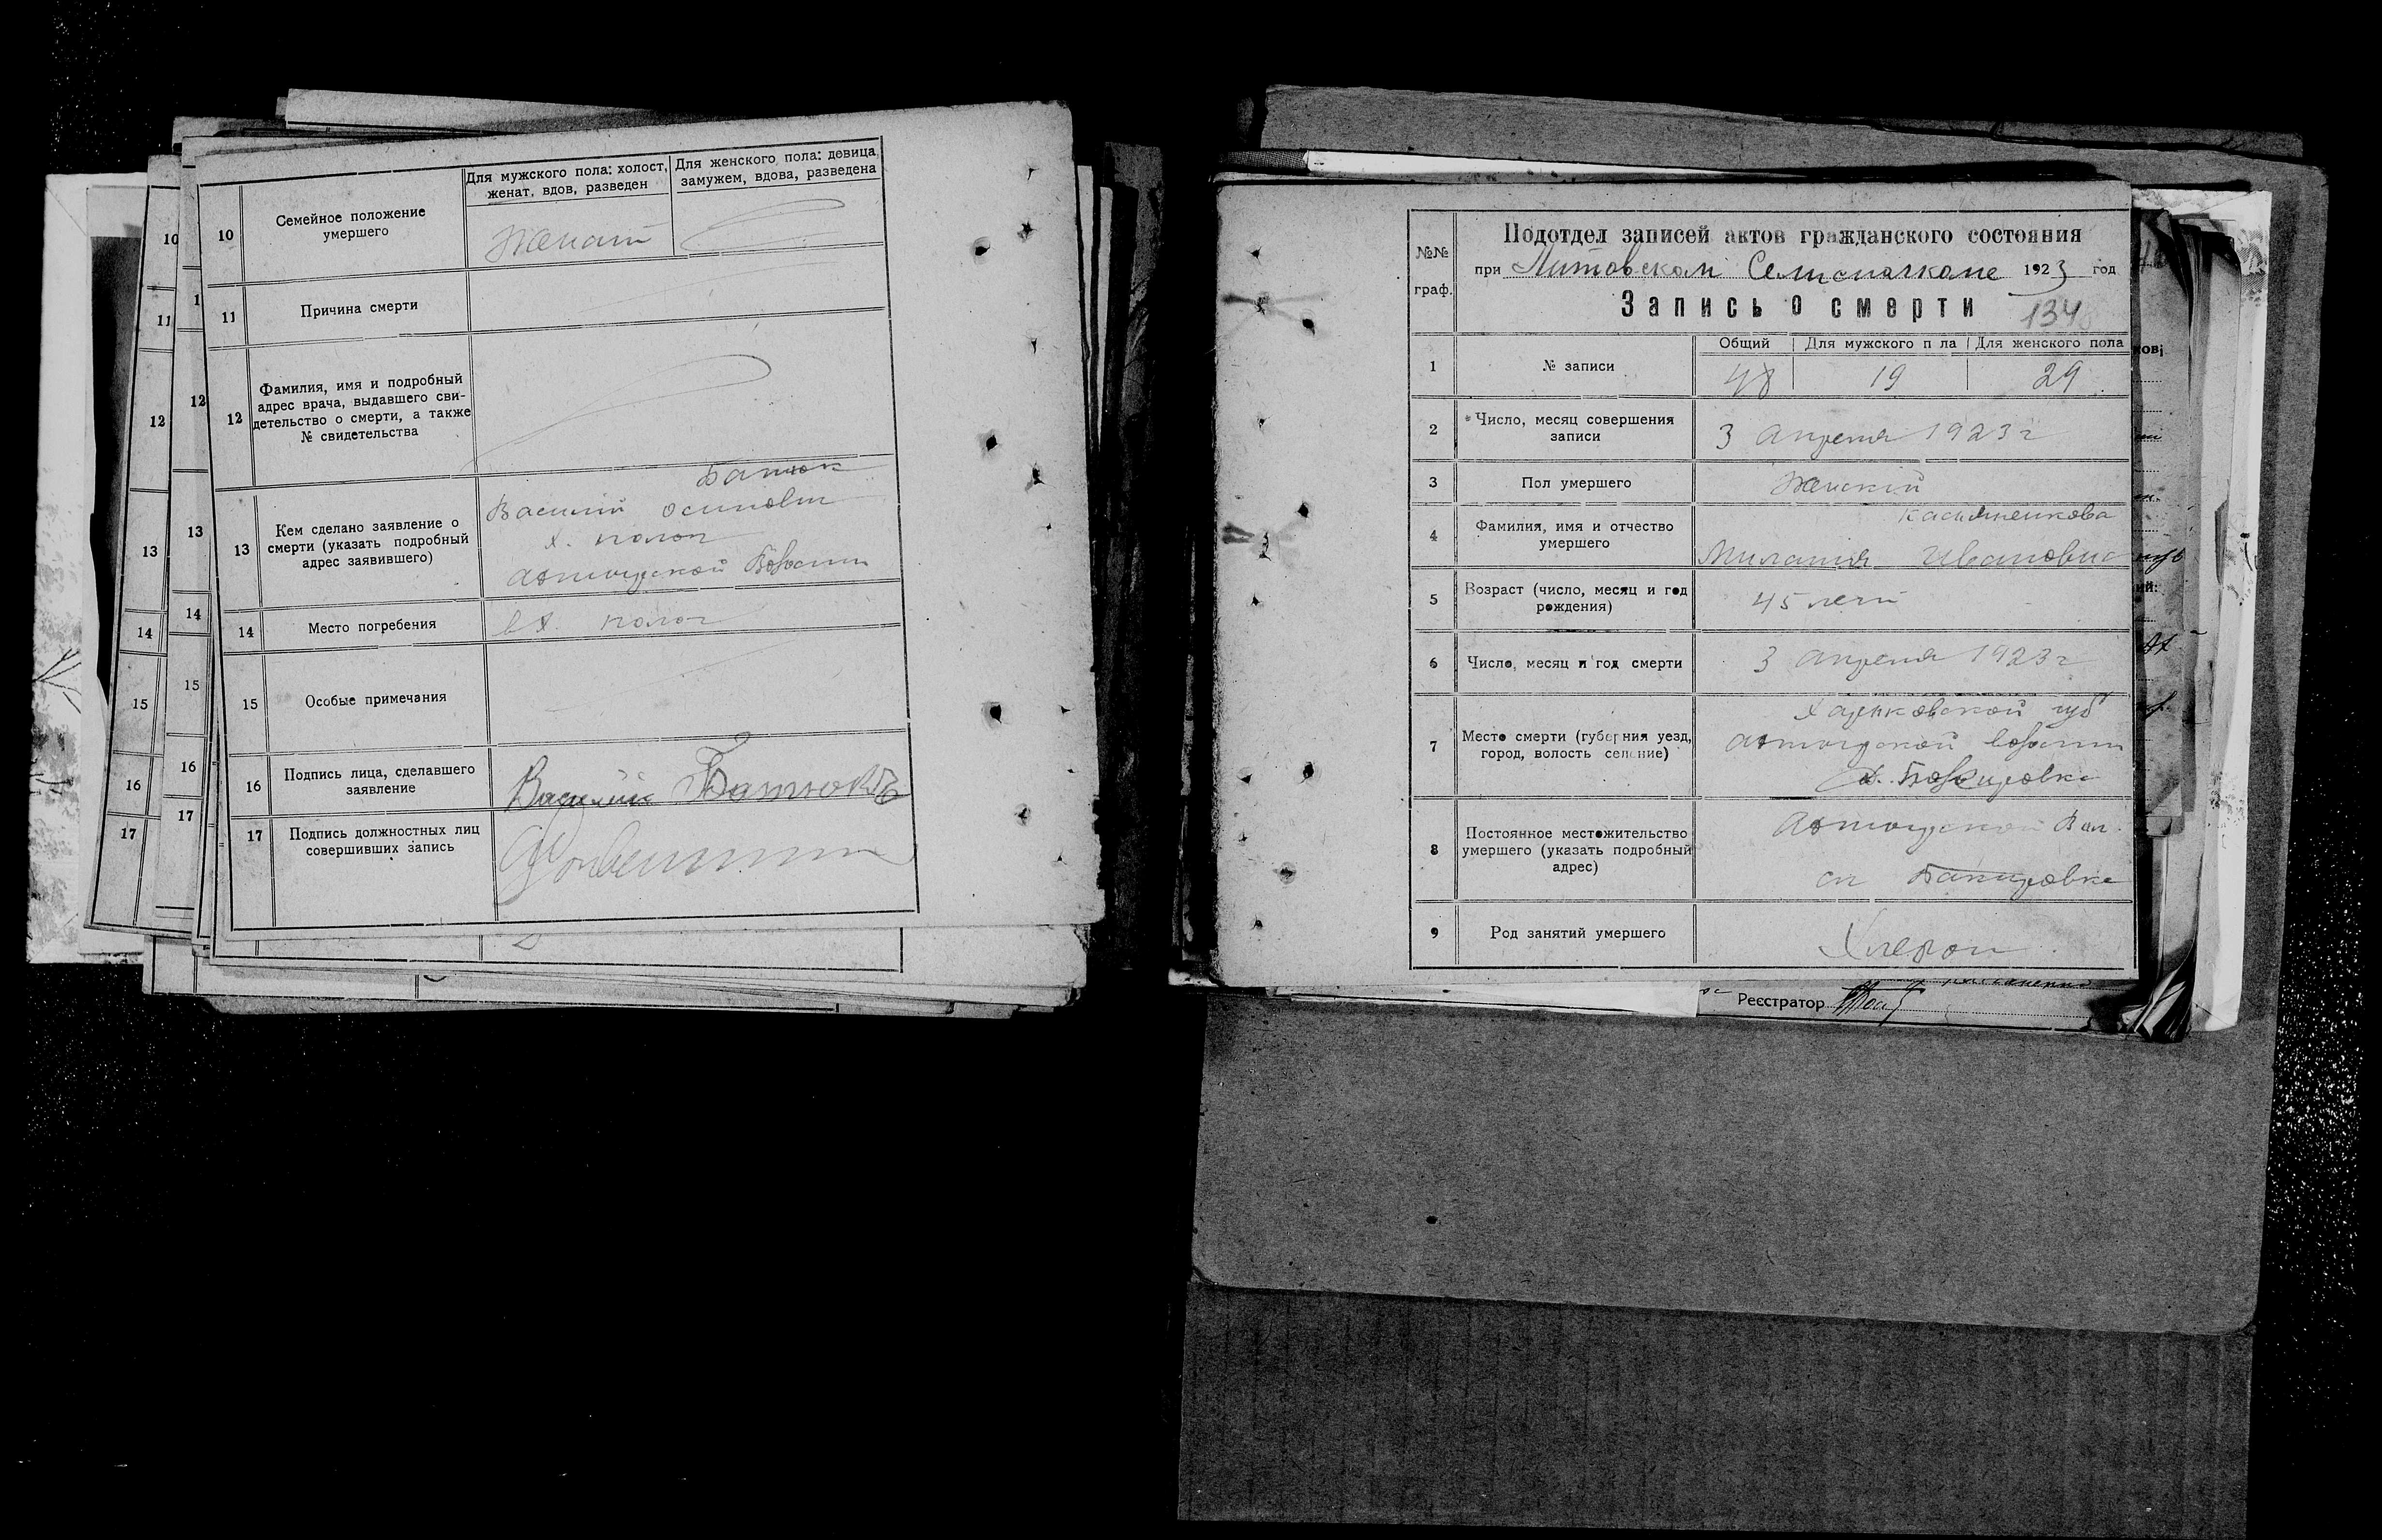 10
Семейное положение
умершего
Для мужского пола: холост,
женат, вдов, разведен
Для женского пола: девица
замужем, вдова, разведена
Женат
11
Причина смерти
12
Фамилия, имя и подробный
адрес врача, выдавшего сви-
детельство о смерти, а также
№ свидетельства
13
Кем сделано заявление о
смерти (указать подробный
адрес заявившего)
Батюк
Василий Осипович
х.
14
Место погребения
в х.
15
Особые примечания
16
Подпись лица, сделавшего
заявление
Василий Батюкъ
17
Подпись должностных лиц
совершивших запись
10
11
12
13
14
15
16
17
1
12
13
14
15
16
17
№№
граф.
Подотдел записей актов гражданского состояния
при 1923 год
Запись о смерти
134
1
№ записи
Общий
Для мужского п ла
Для женского пола
48
19
29
2
Число, месяц совершения
записи
3 апреля 1923 г
3
Пол умершего
Женский
4
Фамилия, имя и отчество
умершего
Касьяненкова
Милания Ивановна
5
Возраст (число, месяц и год
рождения)
45 лет
6
Число, месяц и год смерти
3 апреля 1923 г
7
Место смерти (губерния уезд,
город, волость селение)
Харьковской губ
х.
8
Постоянное местожительство
умершего (указать подробный
адрес)
9
Род занятий умершего
Хлероп
Реєстратор